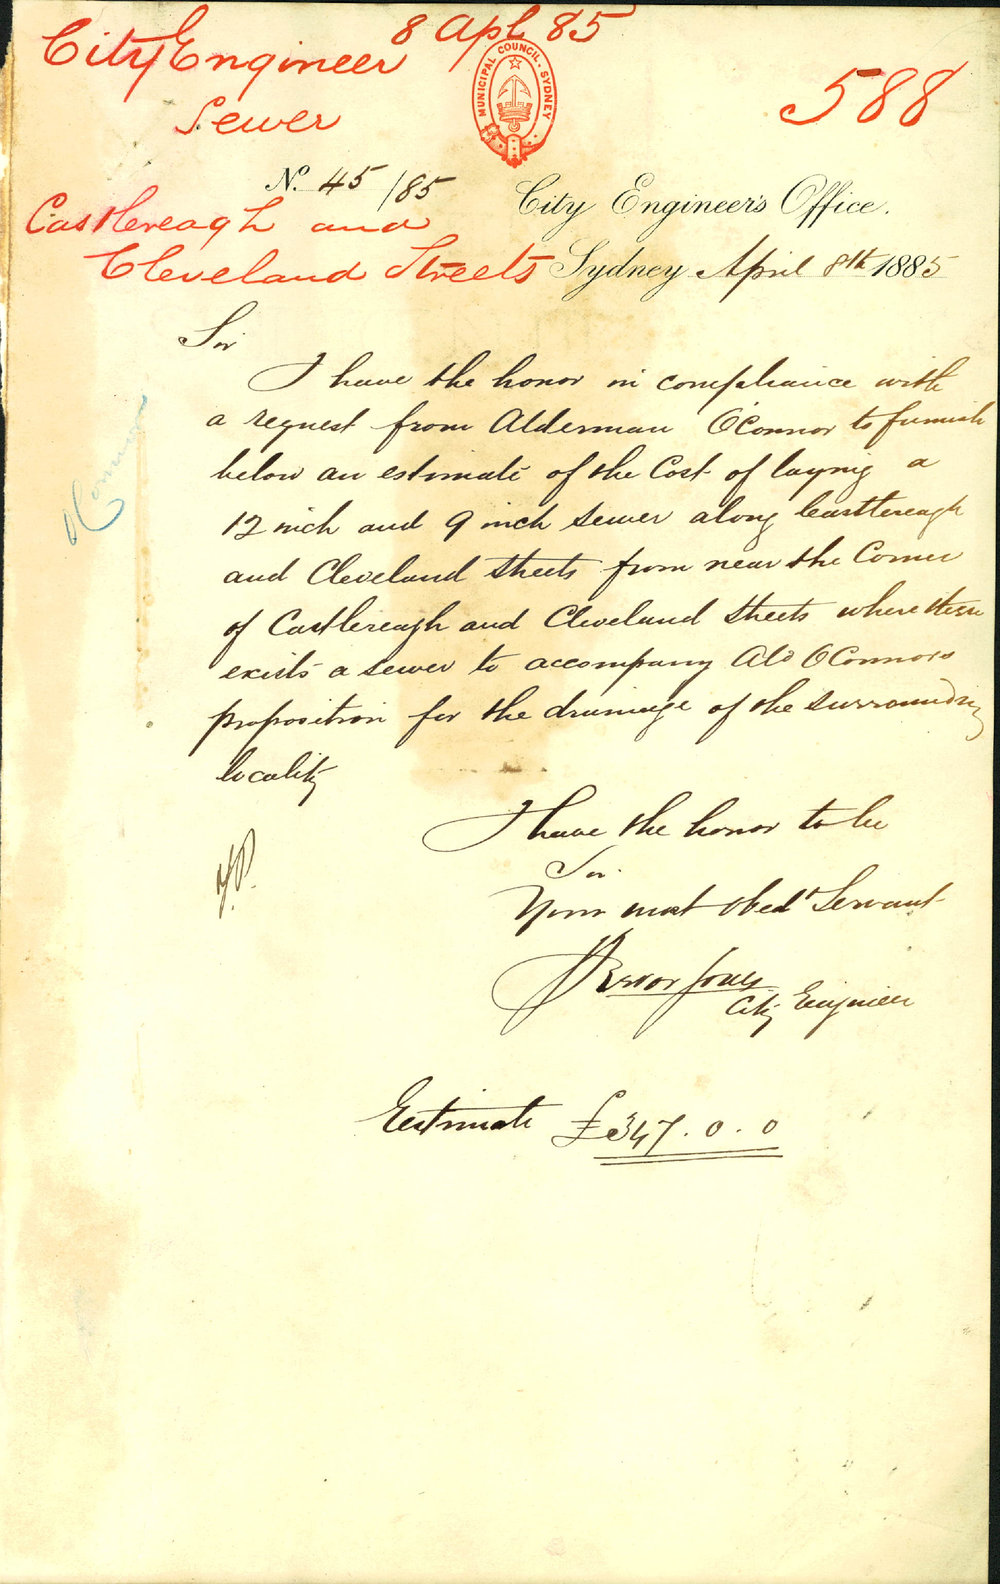 8 Apl 85
City Engineer
Sewer
588
MUNICIPAL COUNCIL. SYDNEY
No. 45/85
City Engineer's Office.
Castlereagh and
Cleveland Streets
Sydney April 8th 1885
Sir
I have the honor in compliance with
a request from Alderman O'Connor to furnish
below an estimate of the Cost of laying a
12 inch and 9 inch sewer along Castlereagh
and Cleveland Streets from near the Corner
of Castlereagh and Cleveland Streets where there
exists a sewer to accompany Ald O'Connors
proposition for the drainage of the surrounding
locality
I have the honor to be
Sir
Your most obedt Servant
Trevor Jones
City Engineer
Estimate £347.0.0